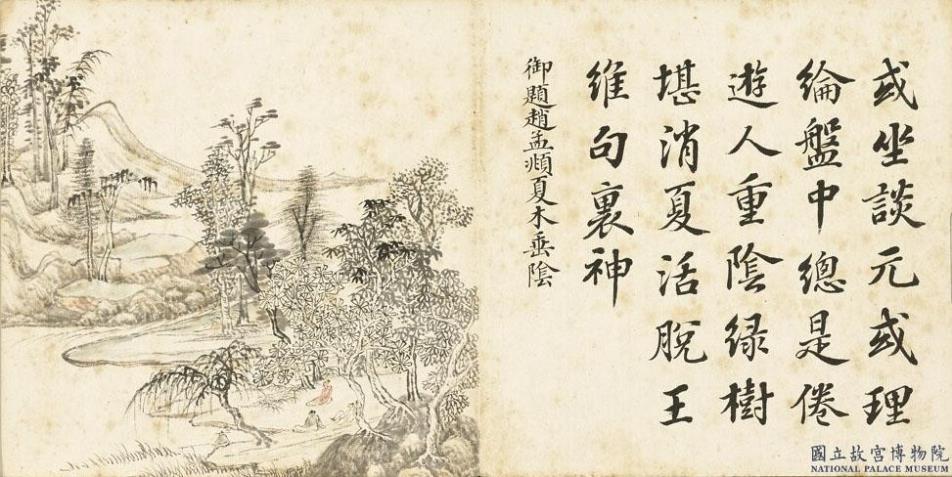 或坐談元或理
綸盤中總是倦
遊人重陰緑樹
堪消夏活脫王
維句裏神
御題趙孟頫夏木垂陰
國立故宮博物院
NATIONAL PALACE MUSEUM